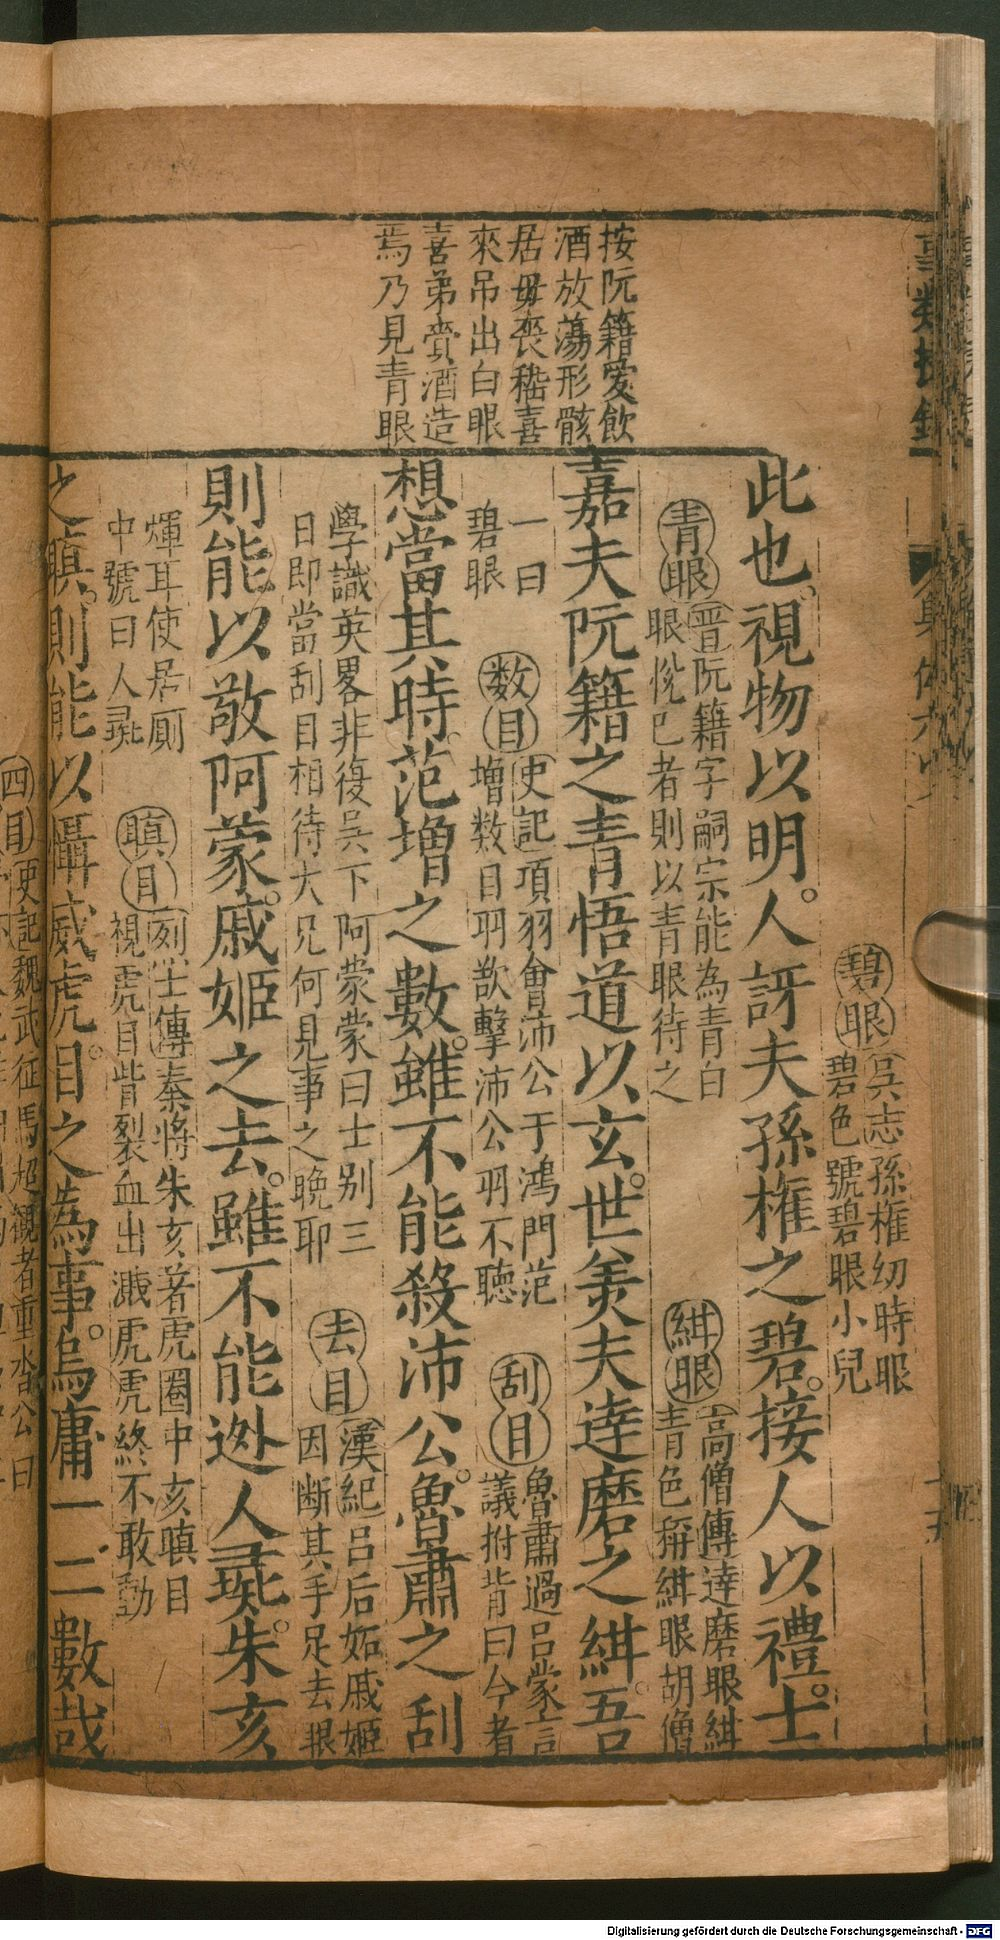 按阮籍愛飲
酒放蕩形骸
居毋喪嵇喜
來吊出白眼
喜弟賫酒造
焉乃見青眼
碧眼
吳志孫權幼時眼
碧色號碧眼小兒
此也。視物以明。人訝夫孫權之碧。接人以禮。士
青眼
晋阮籍字嗣宗能為青白
眼悅已者則以青眼待之
紺眼
高僧傳達磨眼紺
青色稱紺眼胡僧
嘉夫阮籍之青悟道以玄。世羙夫達磨之紺。吾
一曰
碧眼
数目
史記項羽會沛公于鴻門范
增数目羽欲擊沛公羽不聽
刮目
魯肅過呂蒙言
議拊背曰今者
想當其時。范增之數。雖不能殺沛公。魯肅之刮
學識英畧非復吳下阿蒙蒙曰士别三
日即當刮目相待大兄何見事之晚耶
去目
漢紀呂后妬戚姬
因断其手足去眼
則能以敬阿蒙。戚姬之去。雖不能迯人彘。朱亥
煇耳使居厠
中號曰人彘
瞋目
列士傳秦將朱亥著虎圈中亥瞋目
視虎目眥裂血出濺虎虎終不敢動
之瞋。則能以懾威虎。目之為事。烏庸一二數哉
四目
史記魏武征馬超觀者重沓公曰
Digitalisierung gefördert durch die Deutsche Forschungsgemeinschaft - DFG